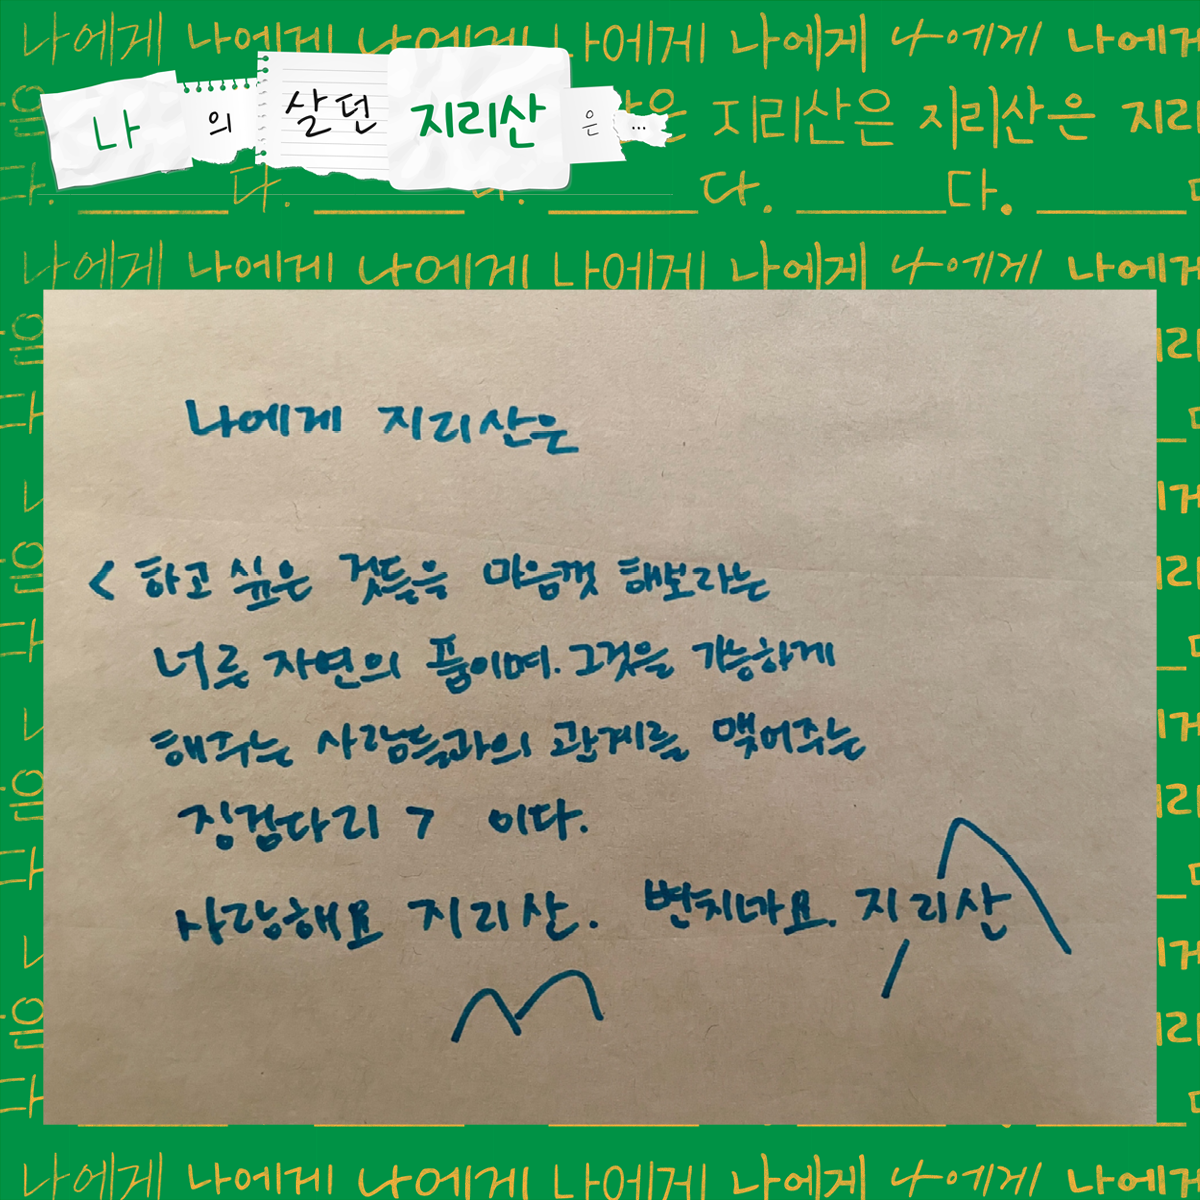 나에게 나에게 나에게 나에게 나에게 나에게 나에게
나의 살던 지리산은 ...
지리산은 지리산은 지리
다. 다. 다.
나에게 나에게 나에게 나에게 나에게 나에게 나에게
나에게 지리산은
< 하고 싶은 것들을 마음껏 해보라는
너른 자연의 품이며. 그것을 가능하게
해주는 사람들과의 관계를 맺어주는
징검다리 > 이다.
사랑해요 지리산. 변치마요. 지리산
나에게 나에게 나에게 나에게 나에게 나에게 나에게